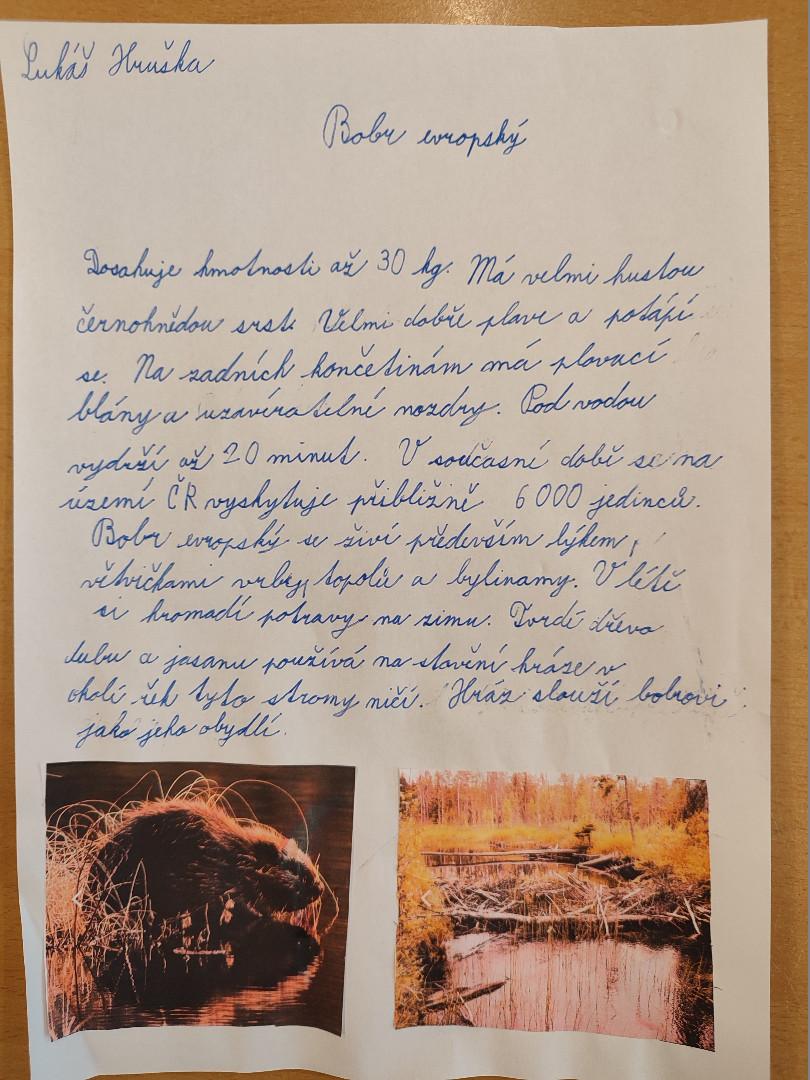 Lukáš Hruška
Bobr evropský
Dosahuje hmotnosti až 30 kg. Má velmi hustou
černohnědou srst. Velmi dobře plave a potápí
se. Na zadních končetinám má plovací
blány a uzavíratelné nozdry. Pod vodou
vydrží až 20 minut. V současní době se na
území ČR vyskytuje přibližně 6 000 jedinců.
Bobr evropský se živí především lýkem,
větvičkami vrby, topolů a bylinamy. V létě
si hromadí potravy na zimu. Tvrdí dřevo
dubu a jasanu používá na stavění hráze v
okolí řek tyto stromy ničí. Hráz slouží bobrovi
jako jeho obydlí.